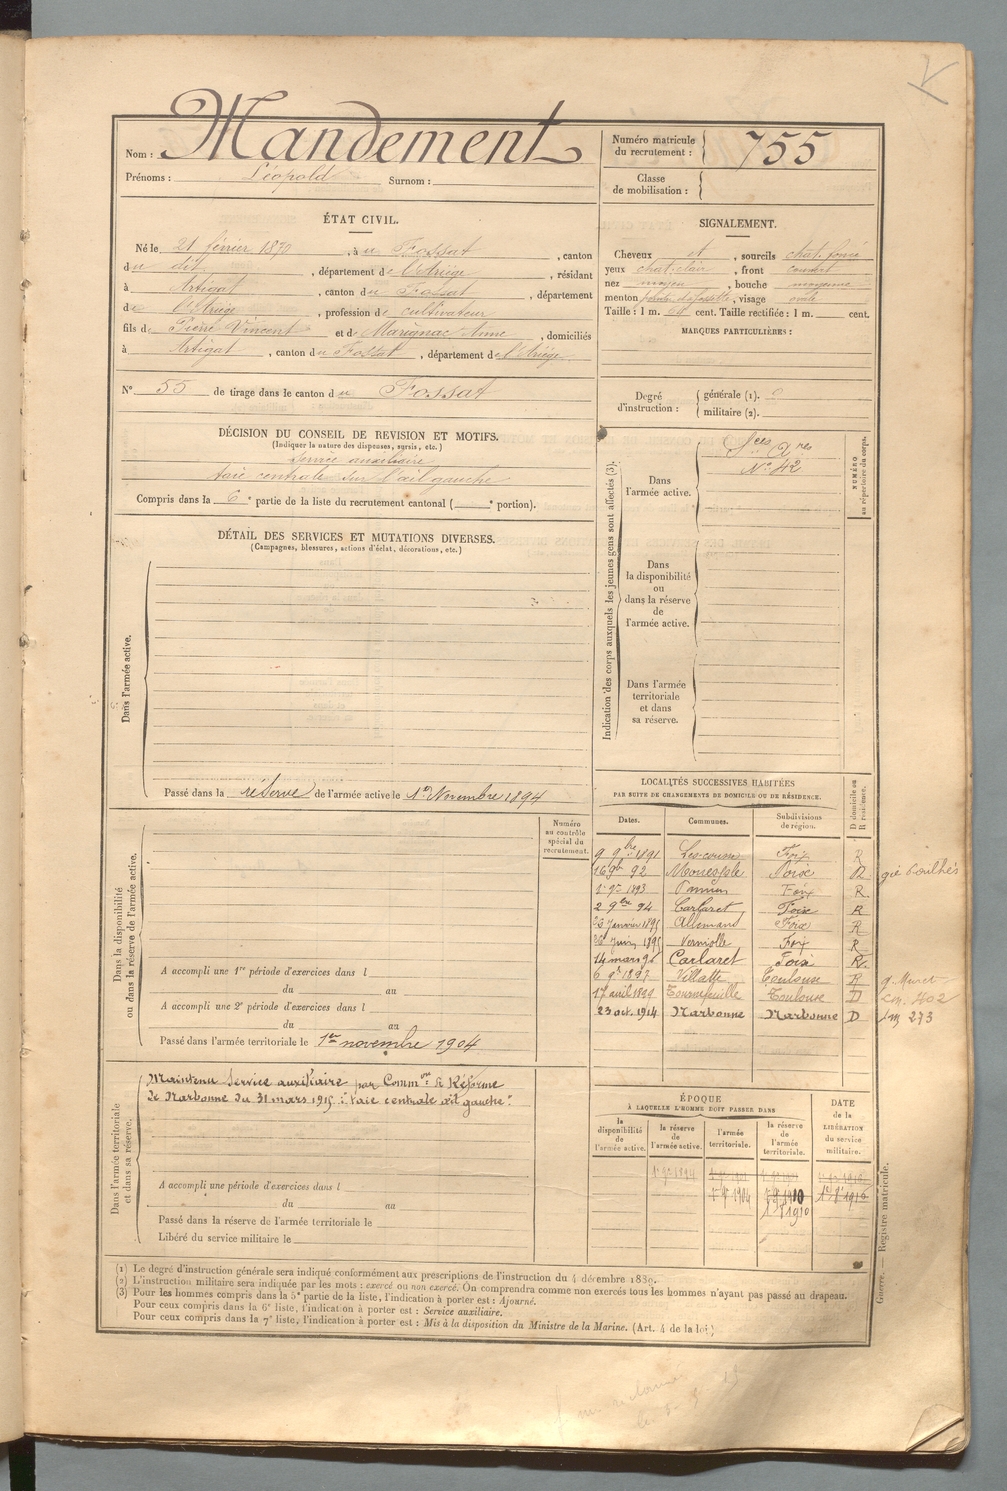 Nom : Mandement
Prénoms : Léopold Surnom :
Numéro matricule du recrutement : 755
Classe de mobilisation :
ÉTAT CIVIL.
Né le 21 février 1870, à u Fossat, canton
du dit, département de l'Ariège, résidant
à Artigat, canton du Fossat, département
de l'Ariège, profession de cultivateur
fils de Pierre Vincent et de Marignac Anne, domiciliés
à Artigat, canton du Fossat, département de l'Ariège.
SIGNALEMENT.
Cheveux et, sourcils chat. foncé
yeux chat. clair, front couvert
nez moyen, bouche moyenne
menton, visage ovale
Taille : 1 m. cent. Taille rectifiée : 1 m. cent.
MARQUES PARTICULIÈRES :
N° 55 de tirage dans le canton du Fossat
Degré d'instruction : générale (1).
militaire (2).
DÉCISION DU CONSEIL DE REVISION ET MOTIFS.
(Indiquer la nature des dispenses, sursis, etc.)
Service auxiliaire
taie centrale sur l'œil gauche
Compris dans la 6e partie de la liste du recrutement cantonal ( e portion).
DÉTAIL DES SERVICES ET MUTATIONS DIVERSES.
(Campagnes, blessures, actions d'éclat, décorations, etc.)
Dans l'armée active.
Passé dans la réserve de l'armée active le 1er Novembre 1894
Indication des corps auxquels les jeunes gens sont affectés (3).
Dans l'armée active.
Sces Ares
N° 42
NUMÉRO au répertoire du corps.
Dans la disponibilité ou dans la réserve de l'armée active.
Dans l'armée territoriale et dans sa réserve.
Dans la disponibilité ou dans la réserve de l'armée active.
Numéro au contrôle spécial du recrutement.
A accompli une 1re période d'exercices dans l
du au
A accompli une 2e période d'exercices dans l
du au
Passé dans l'armée territoriale le 1er novembre 1904
LOCALITÉS SUCCESSIVES HABITÉES
PAR SUITE DE CHANGEMENTS DE DOMICILE OU DE RÉSIDENCE.
D domicile ou R résidence.
Dates. Communes. Subdivisions de région.
9 9bre 1891 Lescousse Foix R
16 9b 92 Foix R
1893 Foix R
2 9bre 94 Carlaret Foix R
26 Janvier 1895 Allemand Foix R
26 Juin 1895 Verniolle Foix R
14 mars 96 Carlaret Foix R
6 1897 Villatte Toulouse R
17 avril 1899 Tournefeuille Toulouse D
23 oct. 1914 Narbonne Narbonne D
273
Dans l'armée territoriale et dans sa réserve.
Maintenu Service auxiliaire par Common de Réforme
de Narbonne du 31 mars 1915 : "taie centrale œil gauche".
A accompli une période d'exercices dans l
du au
Passé dans la réserve de l'armée territoriale le
Libéré du service militaire le
ÉPOQUE
À LAQUELLE L'HOMME DOIT PASSER DANS
la disponibilité de l'armée active. la réserve de l'armée active. l'armée territoriale. la réserve de l'armée territoriale.
DATE de la LIBÉRATION du service militaire.
Guerre. — Registre matricule.
(1) Le degré d'instruction générale sera indiqué conformément aux prescriptions de l'instruction du 4 décembre 1830.
(2) L'instruction militaire sera indiquée par les mots : exercé ou non exercé. On comprendra comme non exercés tous les hommes n'ayant pas passé au drapeau.
(3) Pour les hommes compris dans la 5e partie de la liste, l'indication à porter est : Ajourné.
Pour ceux compris dans la 6e liste, l'indication à porter est : Service auxiliaire.
Pour ceux compris dans la 7e liste, l'indication à porter est : Mis à la disposition du Ministre de la Marine. (Art. 4 de la loi)